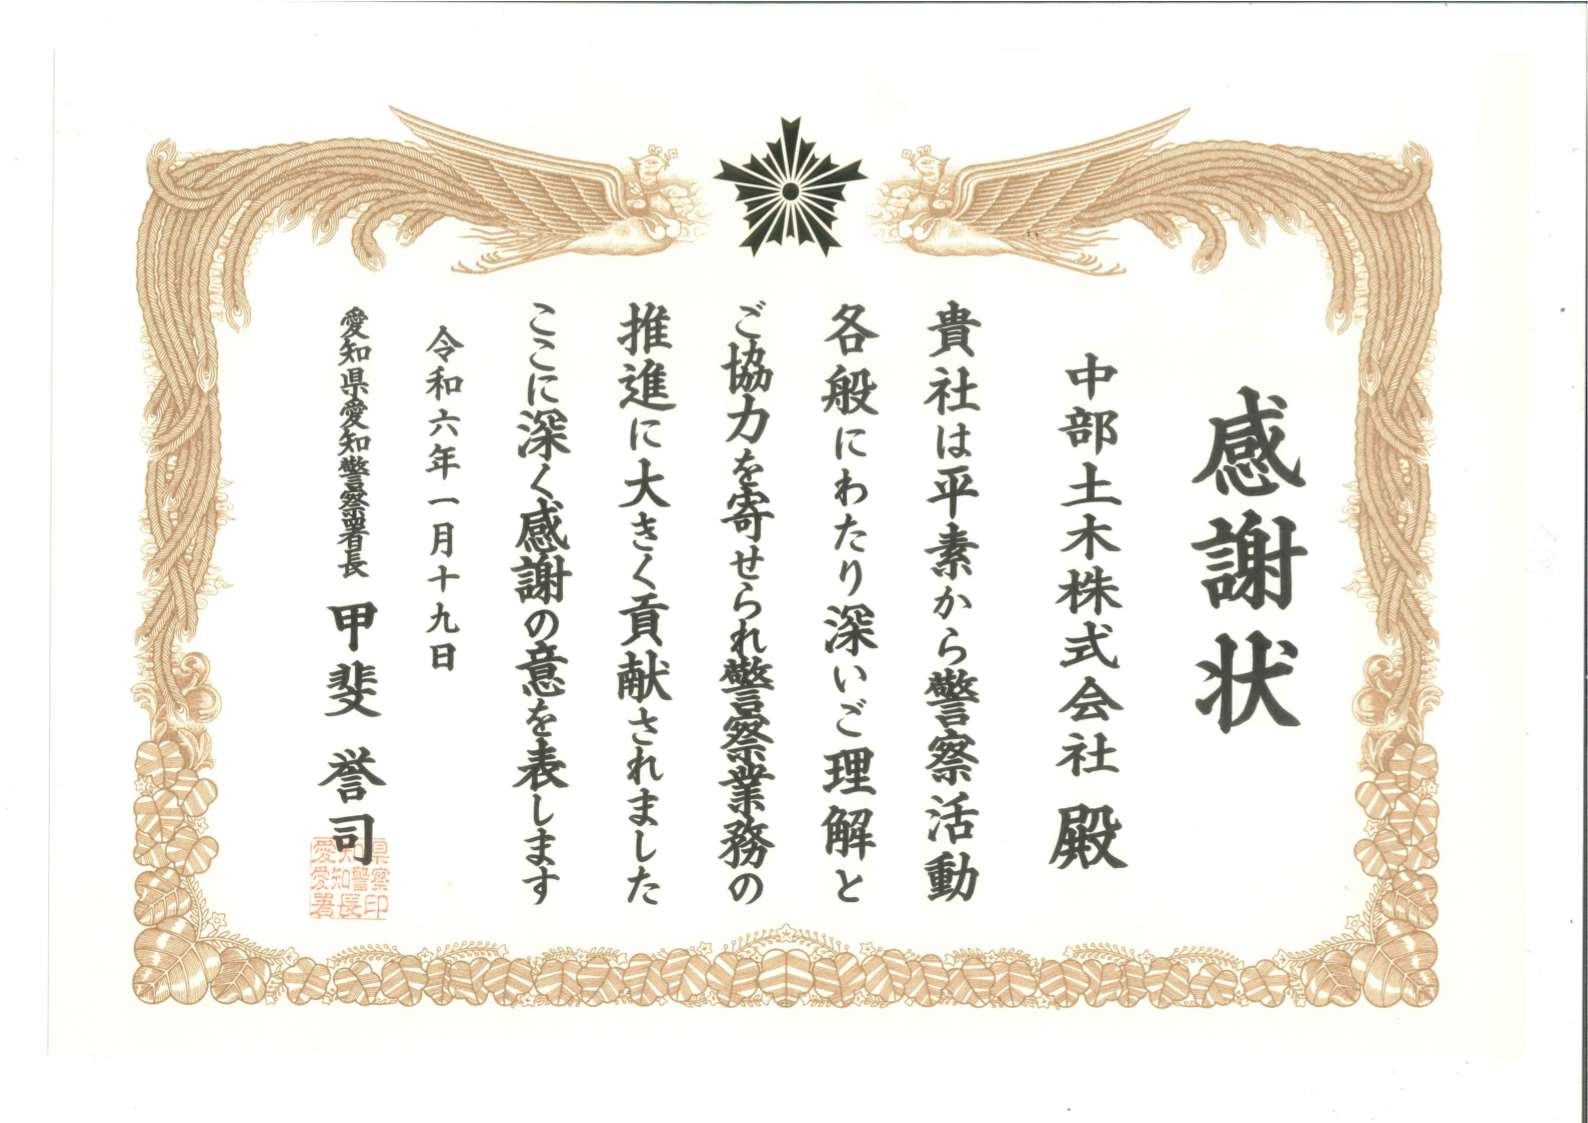 感謝状
中部土木株式会社 殿
貴社は平素から警察活動
各般にわたり深いご理解と
ご協力を寄せられ警察業務の
推進に大きく貢献されました
ここに深く感謝の意を表します
令和六年一月十九日
愛知県愛知警察署長 甲斐 誉司
愛知県
愛知警察
署長印